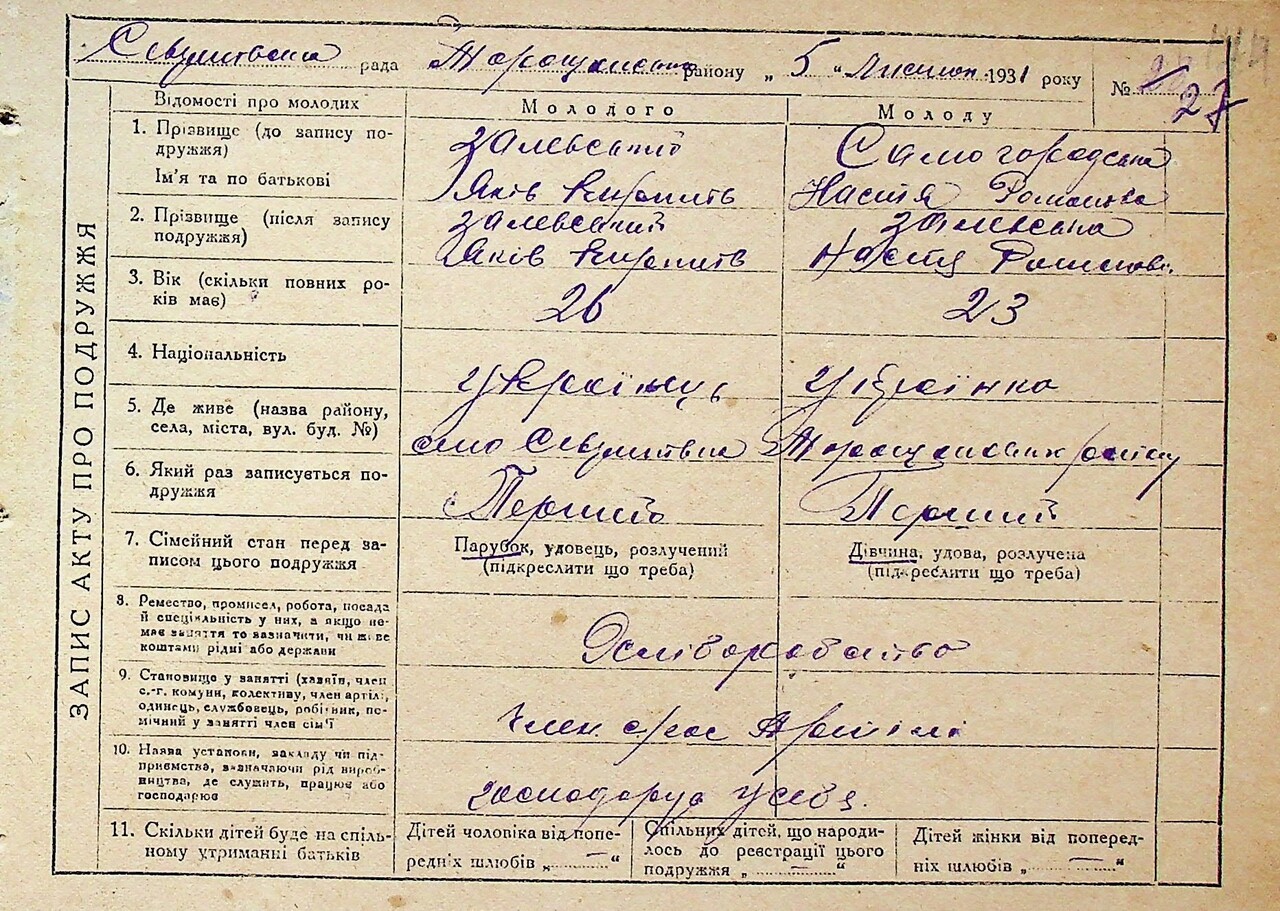 рада Таращанського району „ 5 “ листоп. 1931 року № 27
ЗАПИС АКТУ ПРО ПОДРУЖЖЯ
Відомості про молодих
Молодого
Молоду
1. Прізвище (до запису по-
дружжя)
Ім'я та по батькові
Залевський
Яків
Самогородська
Настя Романівна
2. Прізвище (після запису
подружжя)
Залевський
Яків
Залевська
Настя Романовн.
3. Вік (скільки повних ро-
ків має)
26
23
4. Національність
Українець
Українка
5. Де живе (назва району,
села, міста, вул. буд. №)
село
Таращанськ району
6. Який раз записується по-
дружжя
Перший
Перший
7. Сімейний стан перед за-
писом цього подружжя
Парубок, удовець, розлучений
(підкреслити що треба)
Дівчина, удова, розлучена
(підкреслити що треба)
8. Ремество, промисел, робота, посада
й спеціяльність у них, а якщо не-
має заняття то зазначити, чи живе
коштами рідні або держави
9. Становище у занятті (хазяїн, член
с.-г. комуни, колективу, член артілі,
одинець, службовець, робітник, по-
мічний у занятті член сім'ї
Член Артілі
10. Назва установи, закладу чи під-
приємства, зазначаючи рід вироб-
ництва, де служить, працює або
господарює
господарує у себя.
11. Скільки дітей буде на спіль-
ному утриманні батьків
Дітей чоловіка від попе-
редніх шлюбів „ — “
Спільних дітей, що народи-
лось до реєстрації цього
подружжя „ — “
Дітей жінки від поперед-
ніх шлюбів „ — “